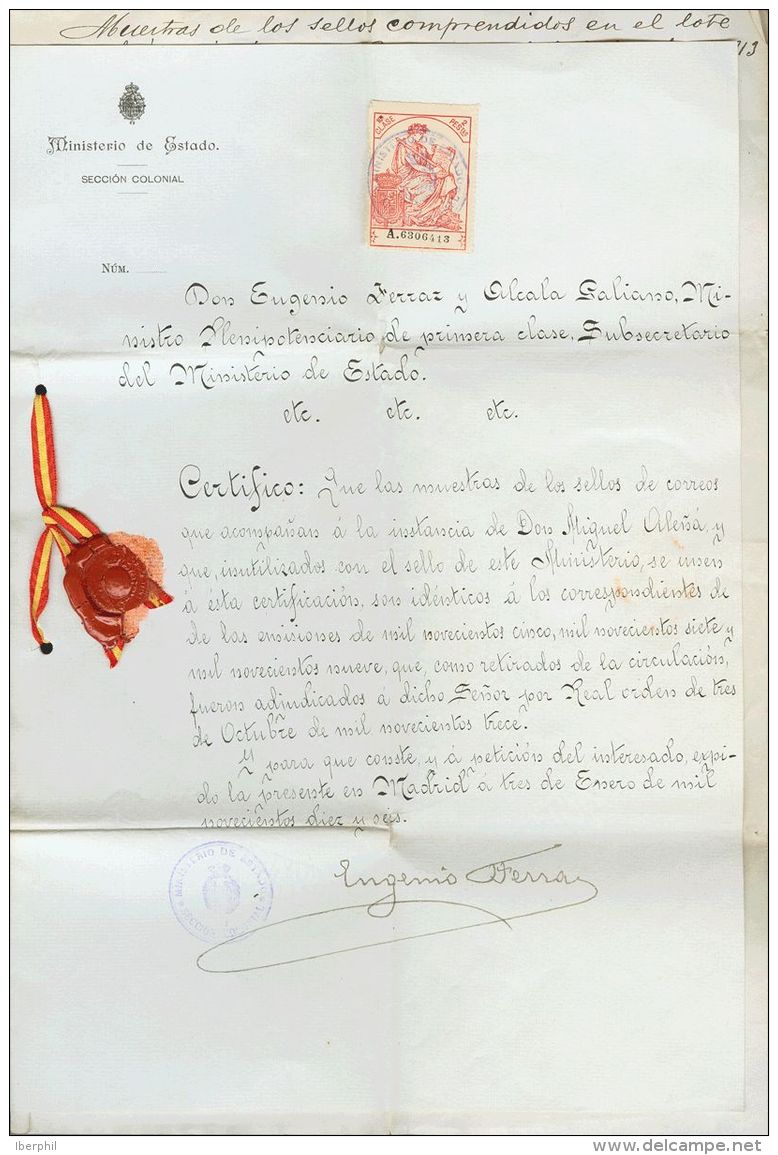 Muestras de los sellos comprendidos en el lote
13
Ministerio de Estado.
SECCIÓN COLONIAL
NÚM.
CLASE
2 PESTAS
A.6306413
Don Eugenio Ferraz y Alcala Galiano, Mi-
nistro Plenipotenciario de primera clase, Subsecretario
del Ministerio de Estado.
etc. etc. etc.
Certifico: Que las muestras de los sellos de correos
que acompañan á la instancia de Don Miguel Aleñá, y
que, inutilizados con el sello de este Ministerio, se unen
á ésta certificación, son idénticos á los correspondientes de
de las emisiones de mil novecientos cinco, mil novecientos siete y
mil novecientos nueve, que, como retirados de la circulación,
fueron adjudicados á dicho Señor por Real orden de tres
de Octubre de mil novecientos trece.
Y para que conste, y á petición del interesado, expi-
do la presente en Madrid á tres de Enero de mil
novecientos diez y seis.
Eugenio Ferraz
MINISTERIO DE ESTADO
SECCION COLONIAL
Iberphil
www.delcampe.net